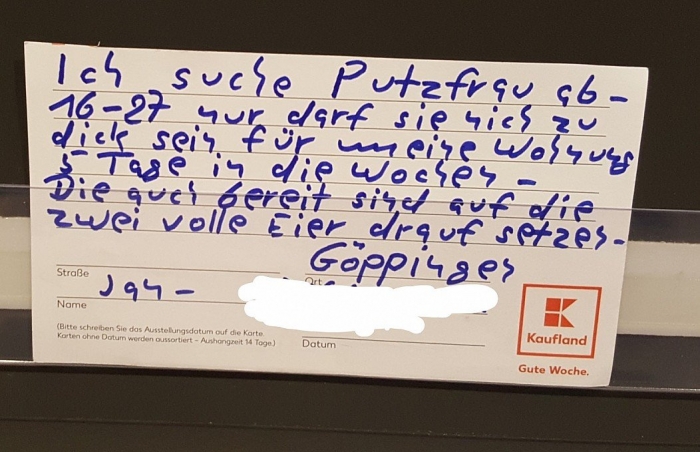 Ich suche Putzfrau ab-
16-27 nur darf sie nich zu
dick sein für meine Wohnung
5 Tage in die Wochen -
Die auch bereit sind auf die
zwei volle Eier drauf setzen-
Göppingen
Straße
Ort
Jan-
Name
(Bitte schreiben Sie das Ausstellungsdatum auf die Karte.
Karten ohne Datum werden aussortiert – Aushangzeit 14 Tage.)
Datum
Kaufland
Gute Woche.